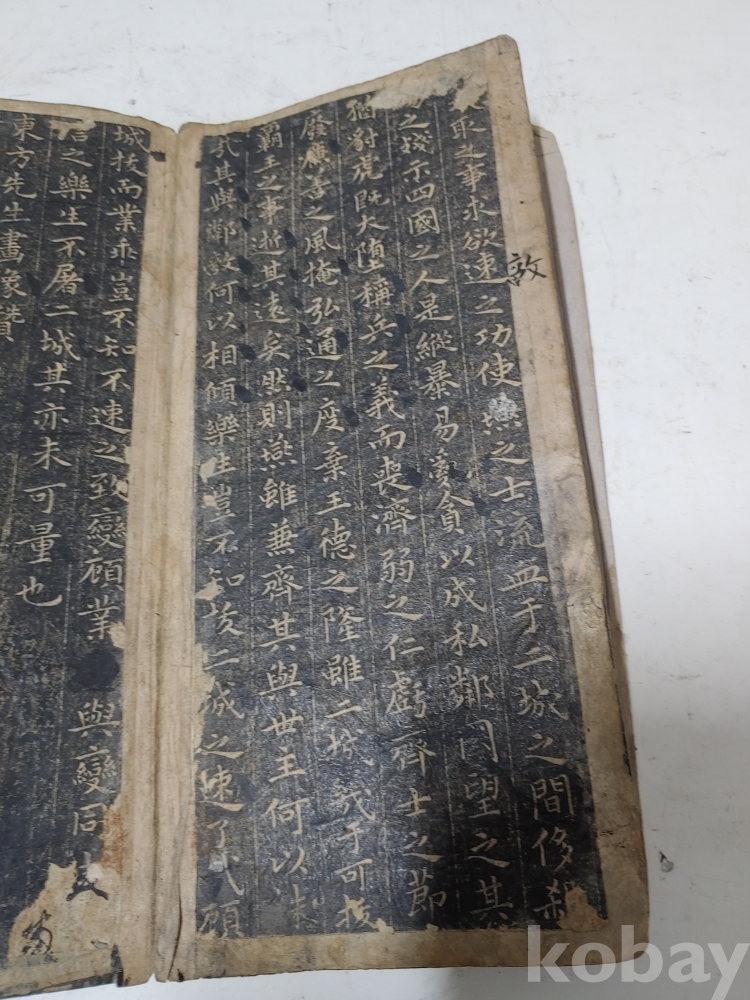 取之事求欲速之功使燕之士流血于二城之間侈
之殘示四國之人是縱暴易亂貪以成私鄰國望之其
猶豺虎既大墮稱兵之義而喪濟弱之仁虧齊士之節
廢廉善之風掩弘通之度棄王德之隆雖二城幾于可拔
霸王之事逝其遠矣然則燕雖兼齊其與世主何以
其與鄰敵何以相傾樂生豈不知拔二城之速了哉顧
城拔而業乖豈不知不速之致變顧業與變同
之樂生不屠二城其亦未可量也
東方先生畫像贊
敵
kobay